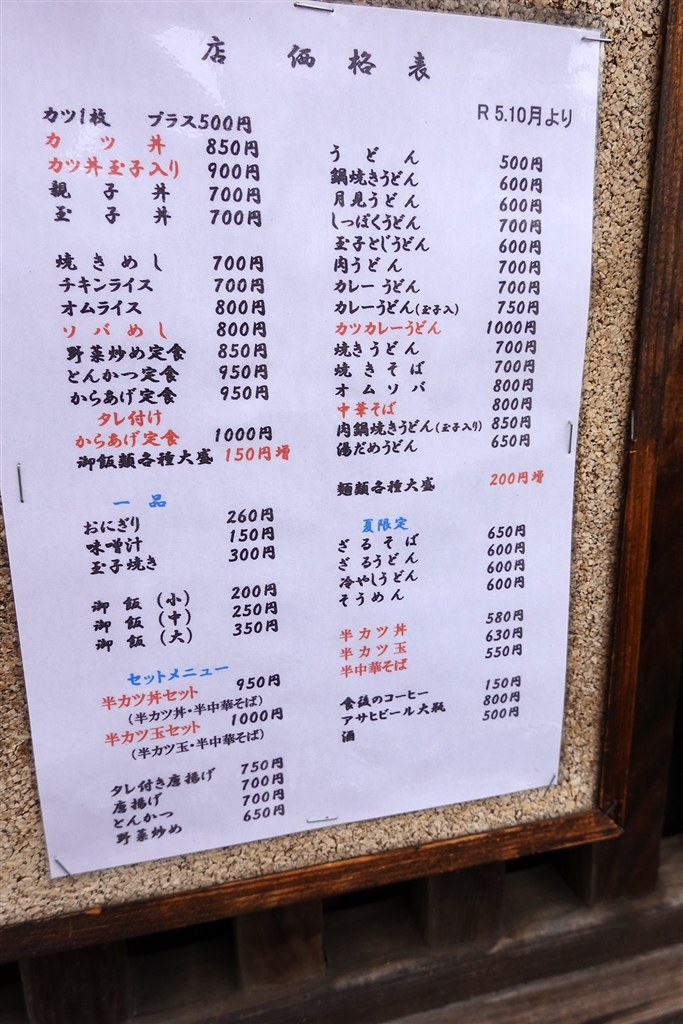 店 価格表
R 5.10月より
カツ1枚 プラス500円
カツ丼 850円
カツ丼玉子入り 900円
親子丼 700円
玉子丼 700円
焼きめし 700円
チキンライス 700円
オムライス 800円
ソバめし 800円
野菜炒め定食 850円
とんかつ定食 950円
からあげ定食 950円
タレ付け
からあげ定食 1000円
御飯類各種大盛 150円増
一品
おにぎり 260円
味噌汁 150円
玉子焼き 300円
御飯(小) 200円
御飯(中) 250円
御飯(大) 350円
セットメニュー
半カツ丼セット 950円
(半カツ丼・半中華そば)
半カツ玉セット 1000円
(半カツ玉・半中華そば)
タレ付き唐揚げ 750円
唐揚げ 700円
とんかつ 700円
野菜炒め 650円
うどん 500円
鍋焼きうどん 600円
月見うどん 600円
しっぽくうどん 700円
玉子とじうどん 600円
肉うどん 700円
カレーうどん 700円
カレーうどん(玉子入) 750円
カツカレーうどん 1000円
焼きうどん 700円
焼きそば 700円
オムソバ 800円
中華そば 800円
肉鍋焼きうどん(玉子入り) 850円
湯だめうどん 650円
麺類各種大盛 200円増
夏限定
ざるそば 650円
ざるうどん 600円
冷やしうどん 600円
そうめん 600円
半カツ丼 580円
半カツ玉 630円
半中華そば 550円
食後のコーヒー 150円
アサヒビール大瓶 800円
酒 500円